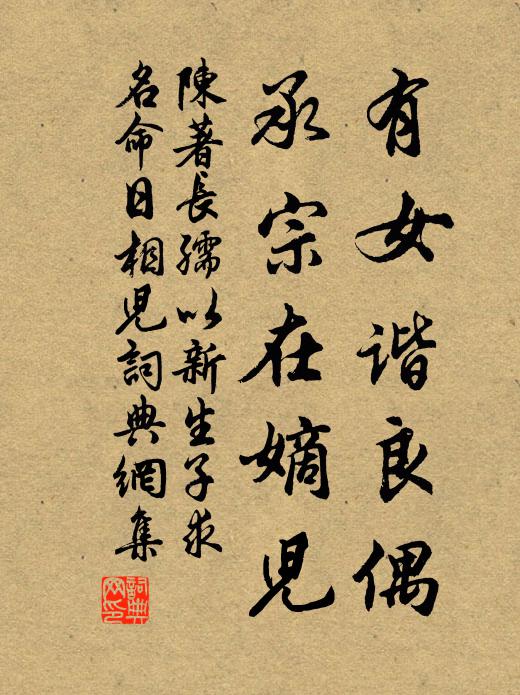 有女谐良偶
承宗在嫡児
陳著長孺以新生子求
名命日相児詞典網集
詞典
网印